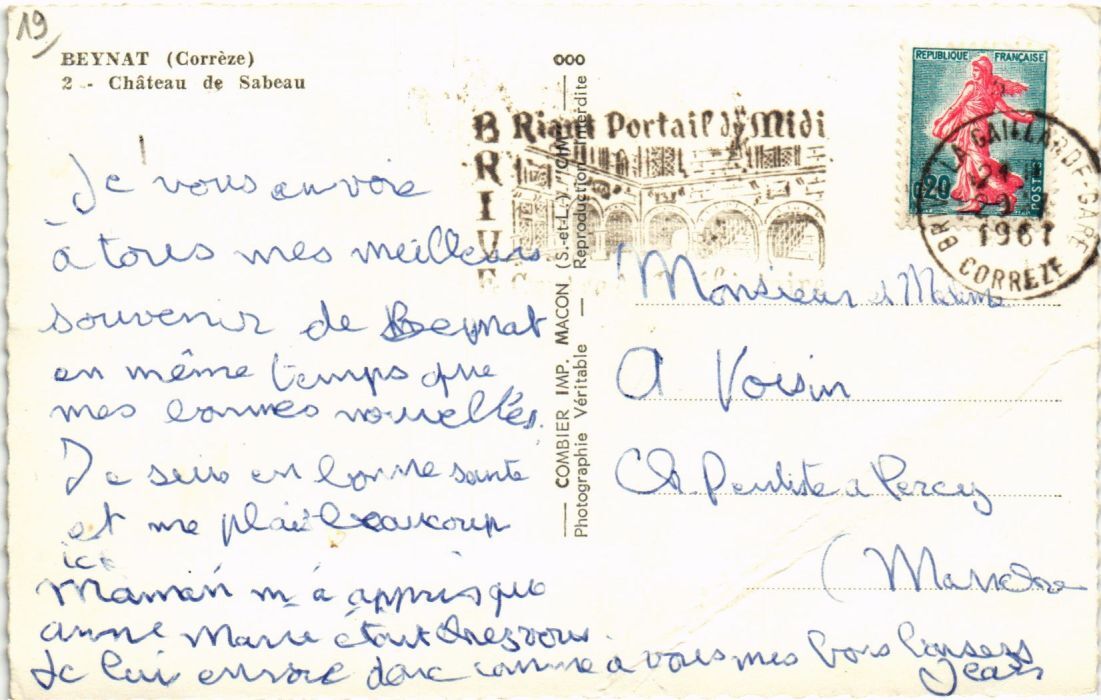 19
BEYNAT (Corrèze)
2 - Château de Sabeau
Je vous envoie
à tous mes meilleurs
souvenir de Beynat
en même temps que
mes bonnes nouvelles.
Je suis en bonne sante
et me plait beaucoup
ici
Maman m'a appris que
anne Marie était chez vous.
Je lui envoie donc comme a vous mes bons baisers
Jean
ooo
COMBIER IMP. MACON (S.-et-L.) "CIM"
Photographie Véritable — Reproduction Interdite
BRIVE
Riant Portail du Midi
REPUBLIQUE FRANÇAISE
0,20
POSTES
BRIVE LA GAILLARDE-GARE
1961
CORREZE
Monsieur et Madame
A Voisin
Ch Dentiste a Percy
(Manche